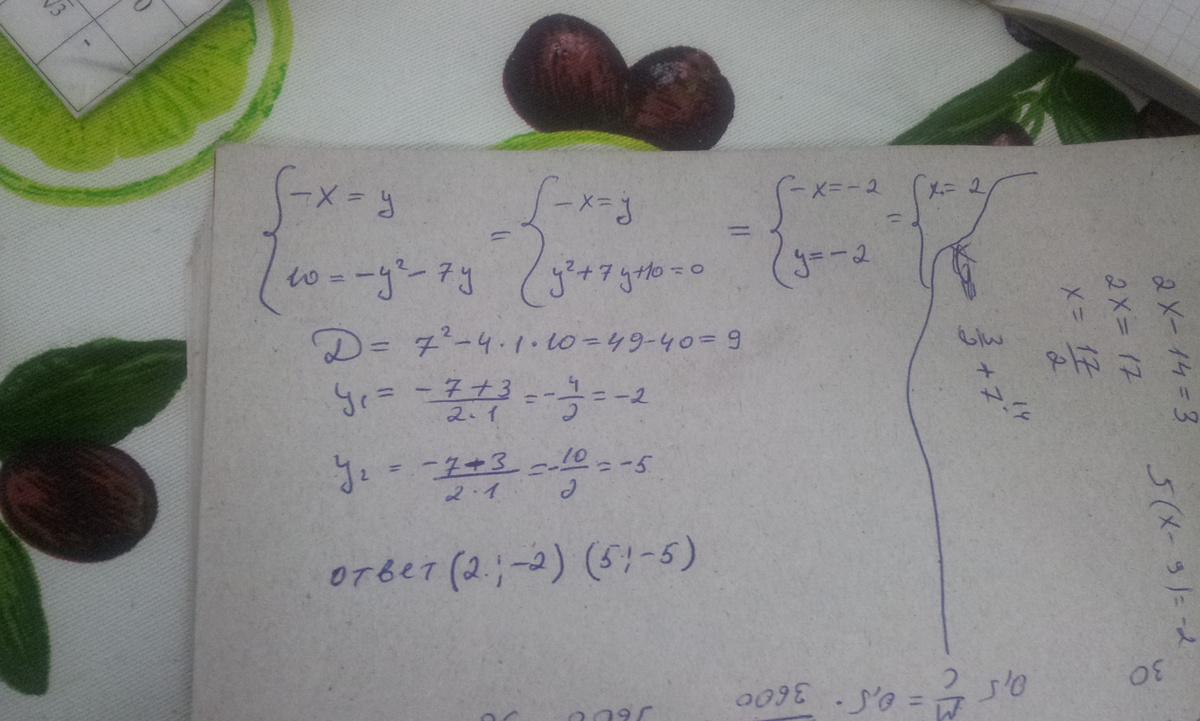 { -x = y
10 = -y² - 7y
= { -x = y
y² + 7y + 10 = 0
= { -x = -2
y = -2
= { x = 2
D = 7² - 4·1·10 = 49 - 40 = 9
y₁ = (-7+3)/(2·1) = -4/2 = -2
y₂ = (-7-3)/(2·1) = -10/2 = -5
ответ (2;-2) (5;-5)
2x - 14 = 3
2x = 17
x = 17/2
3/2 + 7
5(x - 9) = -2
30
0,5 м/с = 0,5 · 3600
3600
√3
0